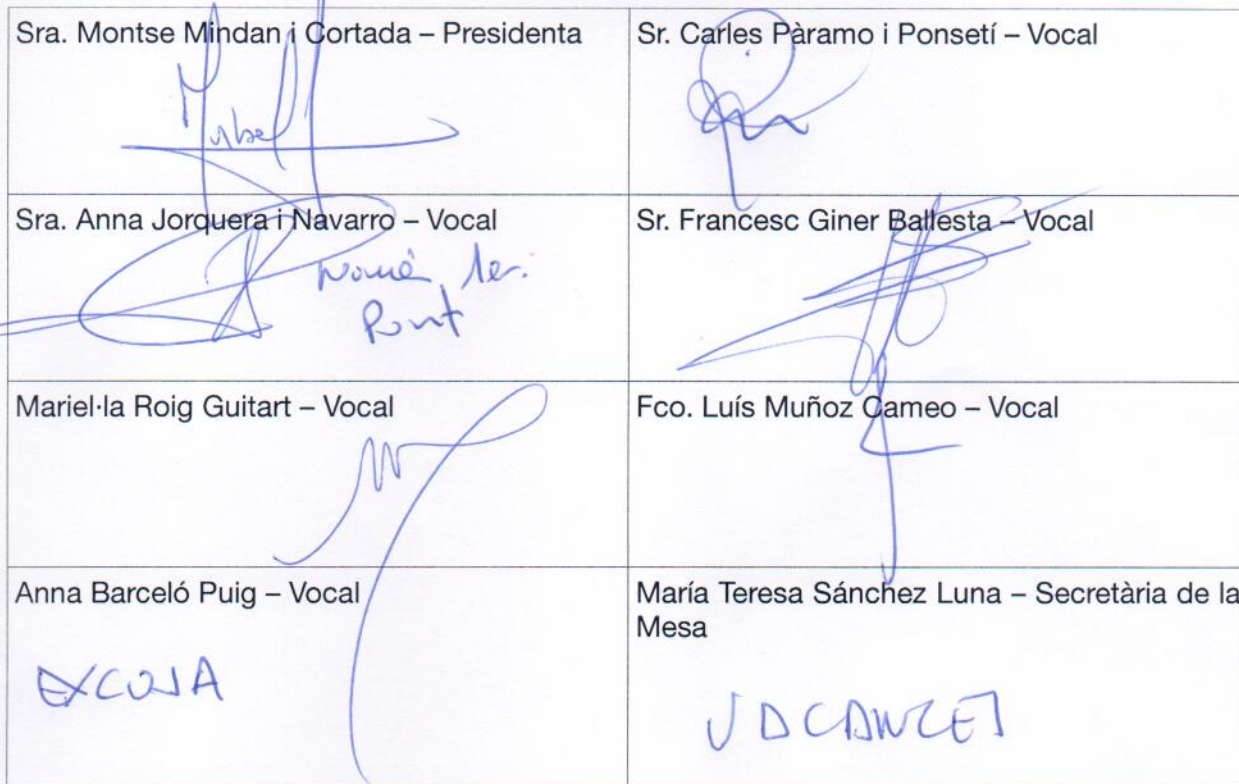 Sra. Montse Mindan i Cortada – Presidenta
Sr. Carles Pàramo i Ponsetí – Vocal
Sra. Anna Jorquera i Navarro – Vocal
Només 1er.
Punt
Sr. Francesc Giner Ballesta – Vocal
Mariel·la Roig Guitart – Vocal
Fco. Luís Muñoz Cameo – Vocal
Anna Barceló Puig – Vocal
EXCUSA
María Teresa Sánchez Luna – Secretària de la
Mesa
VACANCES